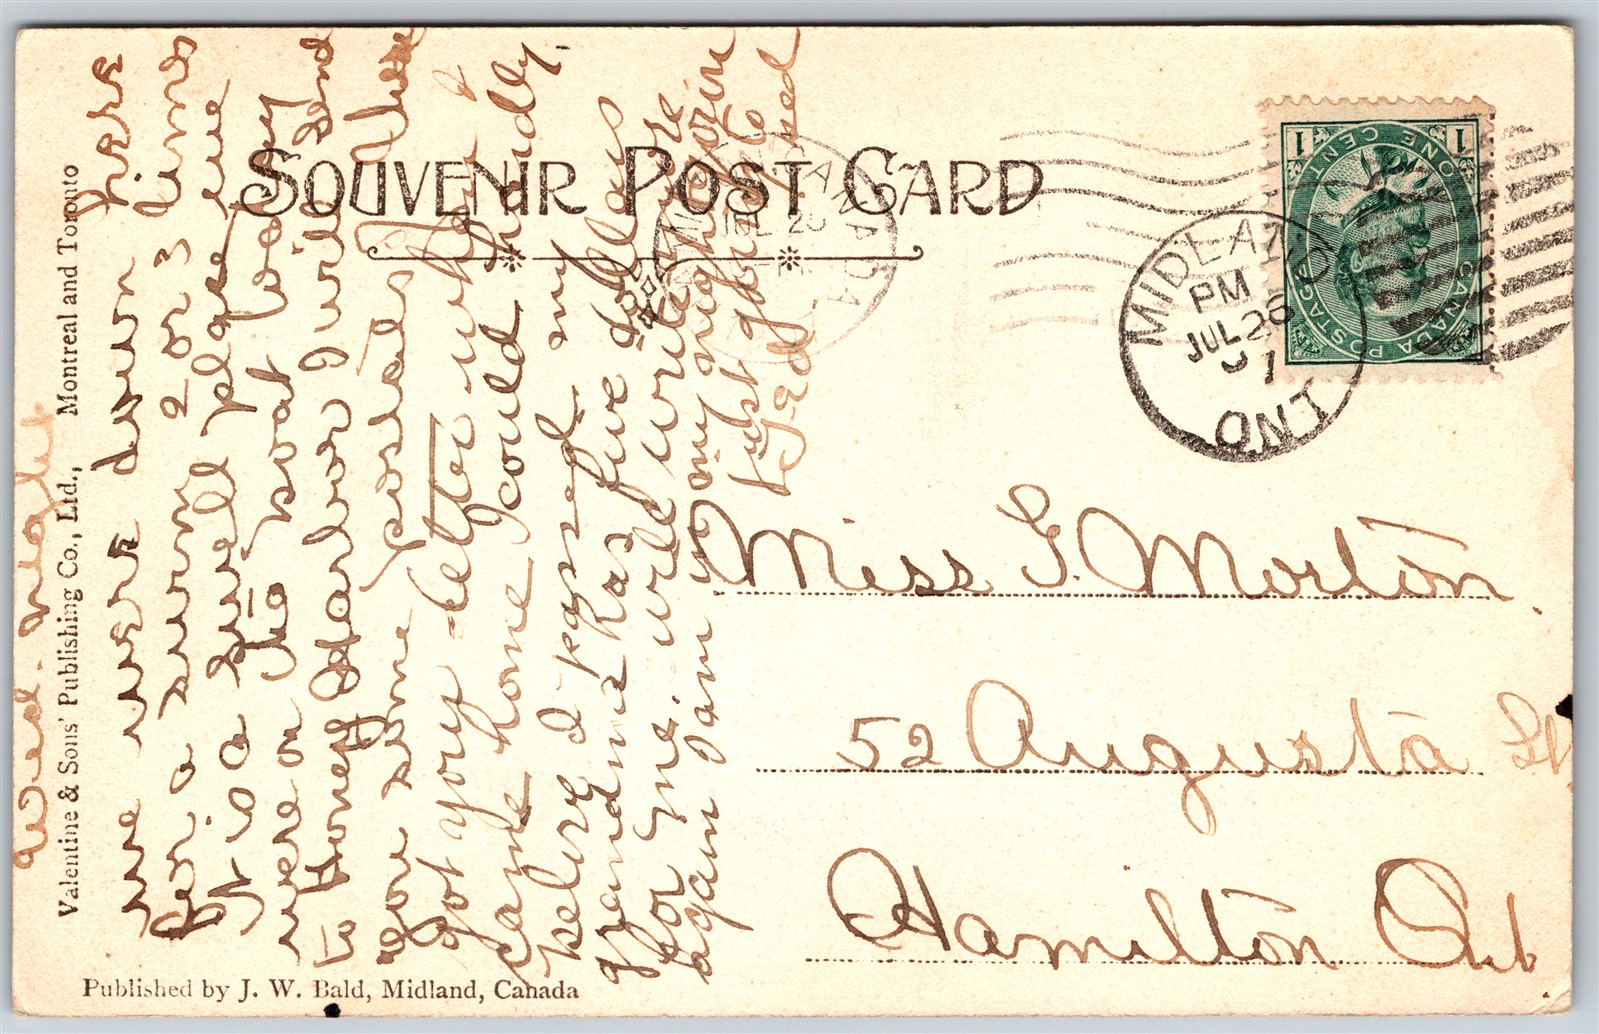 SOUVENIR POST CARD
Valentine & Sons' Publishing Co., Ltd., Montreal and Toronto
Published by J. W. Bald, Midland, Canada
CANADA POSTAGE
ONE CENT
1 1
MIDLAND
PM
JUL 26
07
ONT
Miss G. Morton.
52 Augusta St
Hamilton Ont
Wed. night
we were down here
for a swim 2 or 3 times
It is a swell place, we
were on the boat to day
to Honey Harbor I will send
you some postals
got your letter when I
came home I could hardly.
belive I passed. my
grandma has five dollars
for me. will write more
again I am in my nightgown
just going to
bed